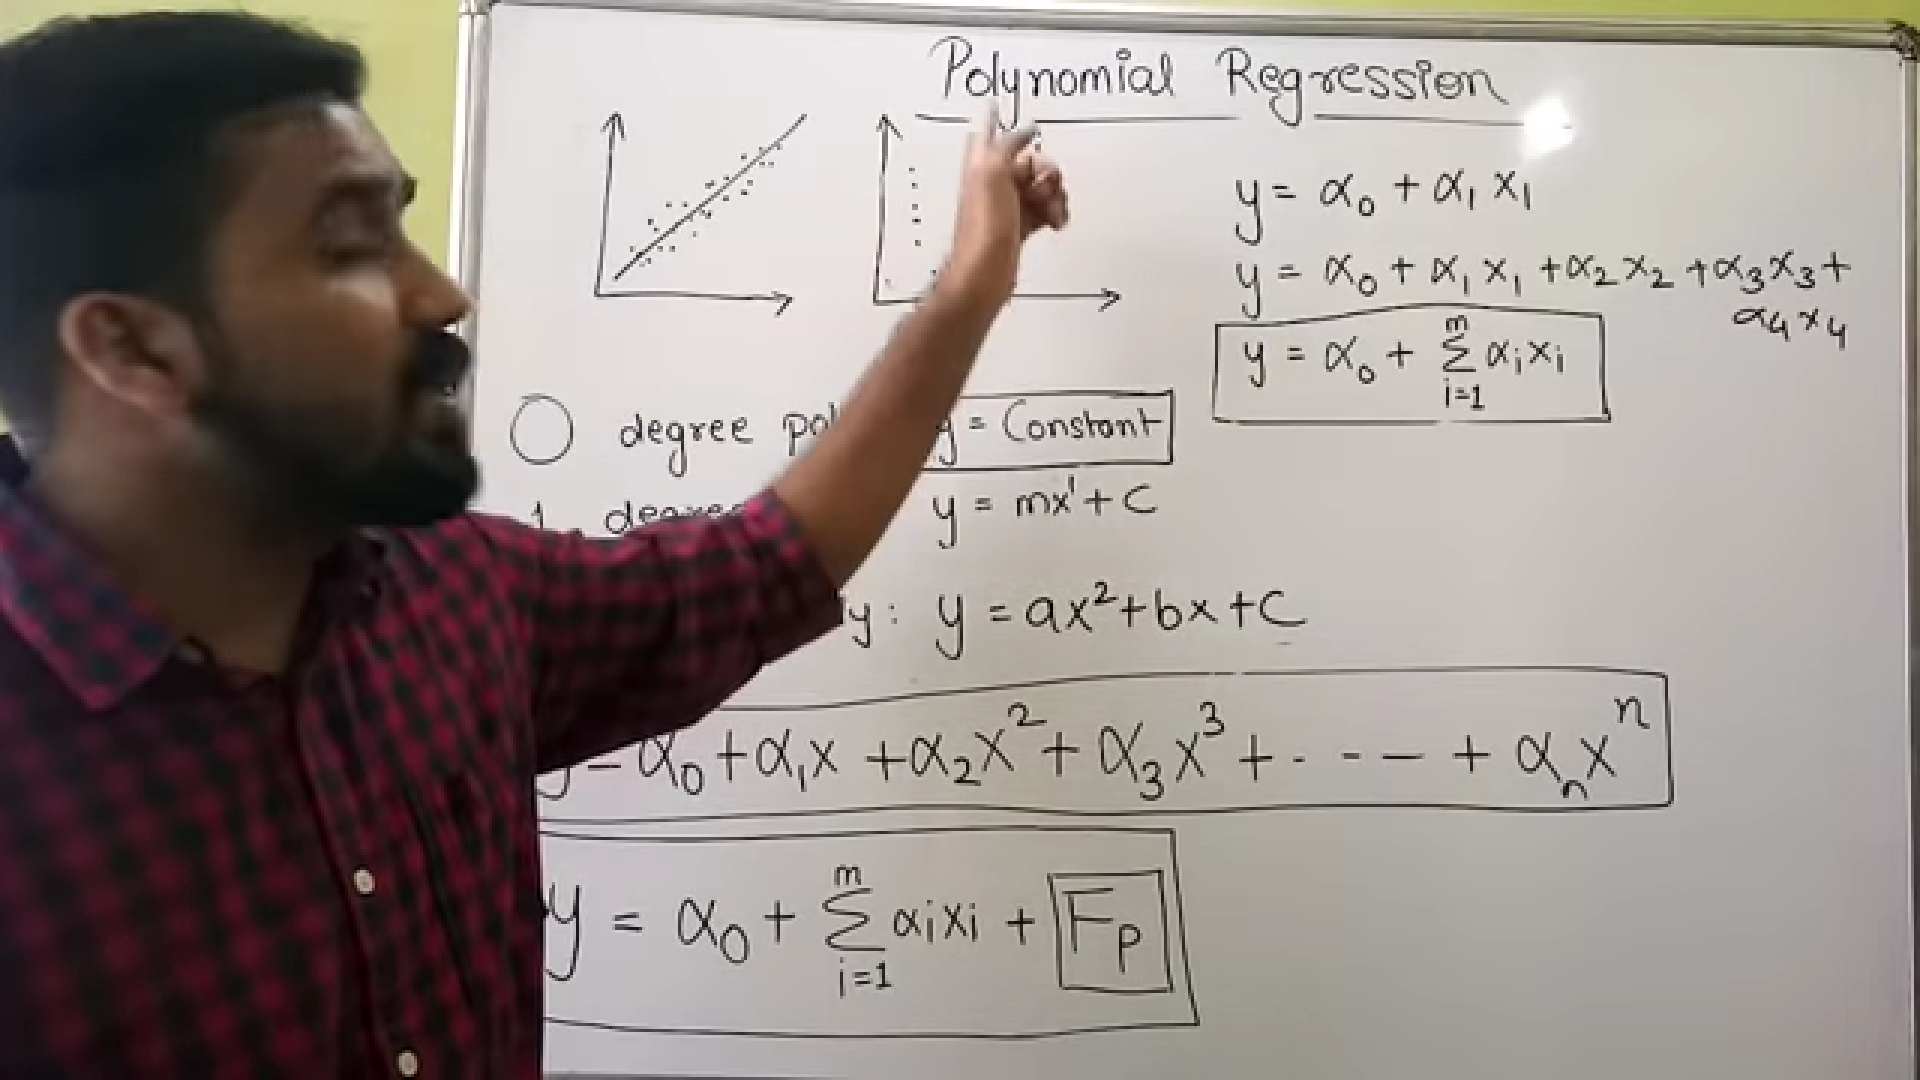 Polynomial Regression
y = α₀ + α₁ x₁
y = α₀ + α₁ x₁ + α₂ x₂ + α₃ x₃ +
α₄ x₄
y = α₀ + m∑i=1 αᵢxᵢ
0 degree y = Constant
1 y = mx¹ + c
y = ax² + bx + c
α₀ + α₁x + α₂x² + α₃x³ + · - - - + αₙxⁿ
y = α₀ + m∑i=1 αᵢxᵢ + Fₚ